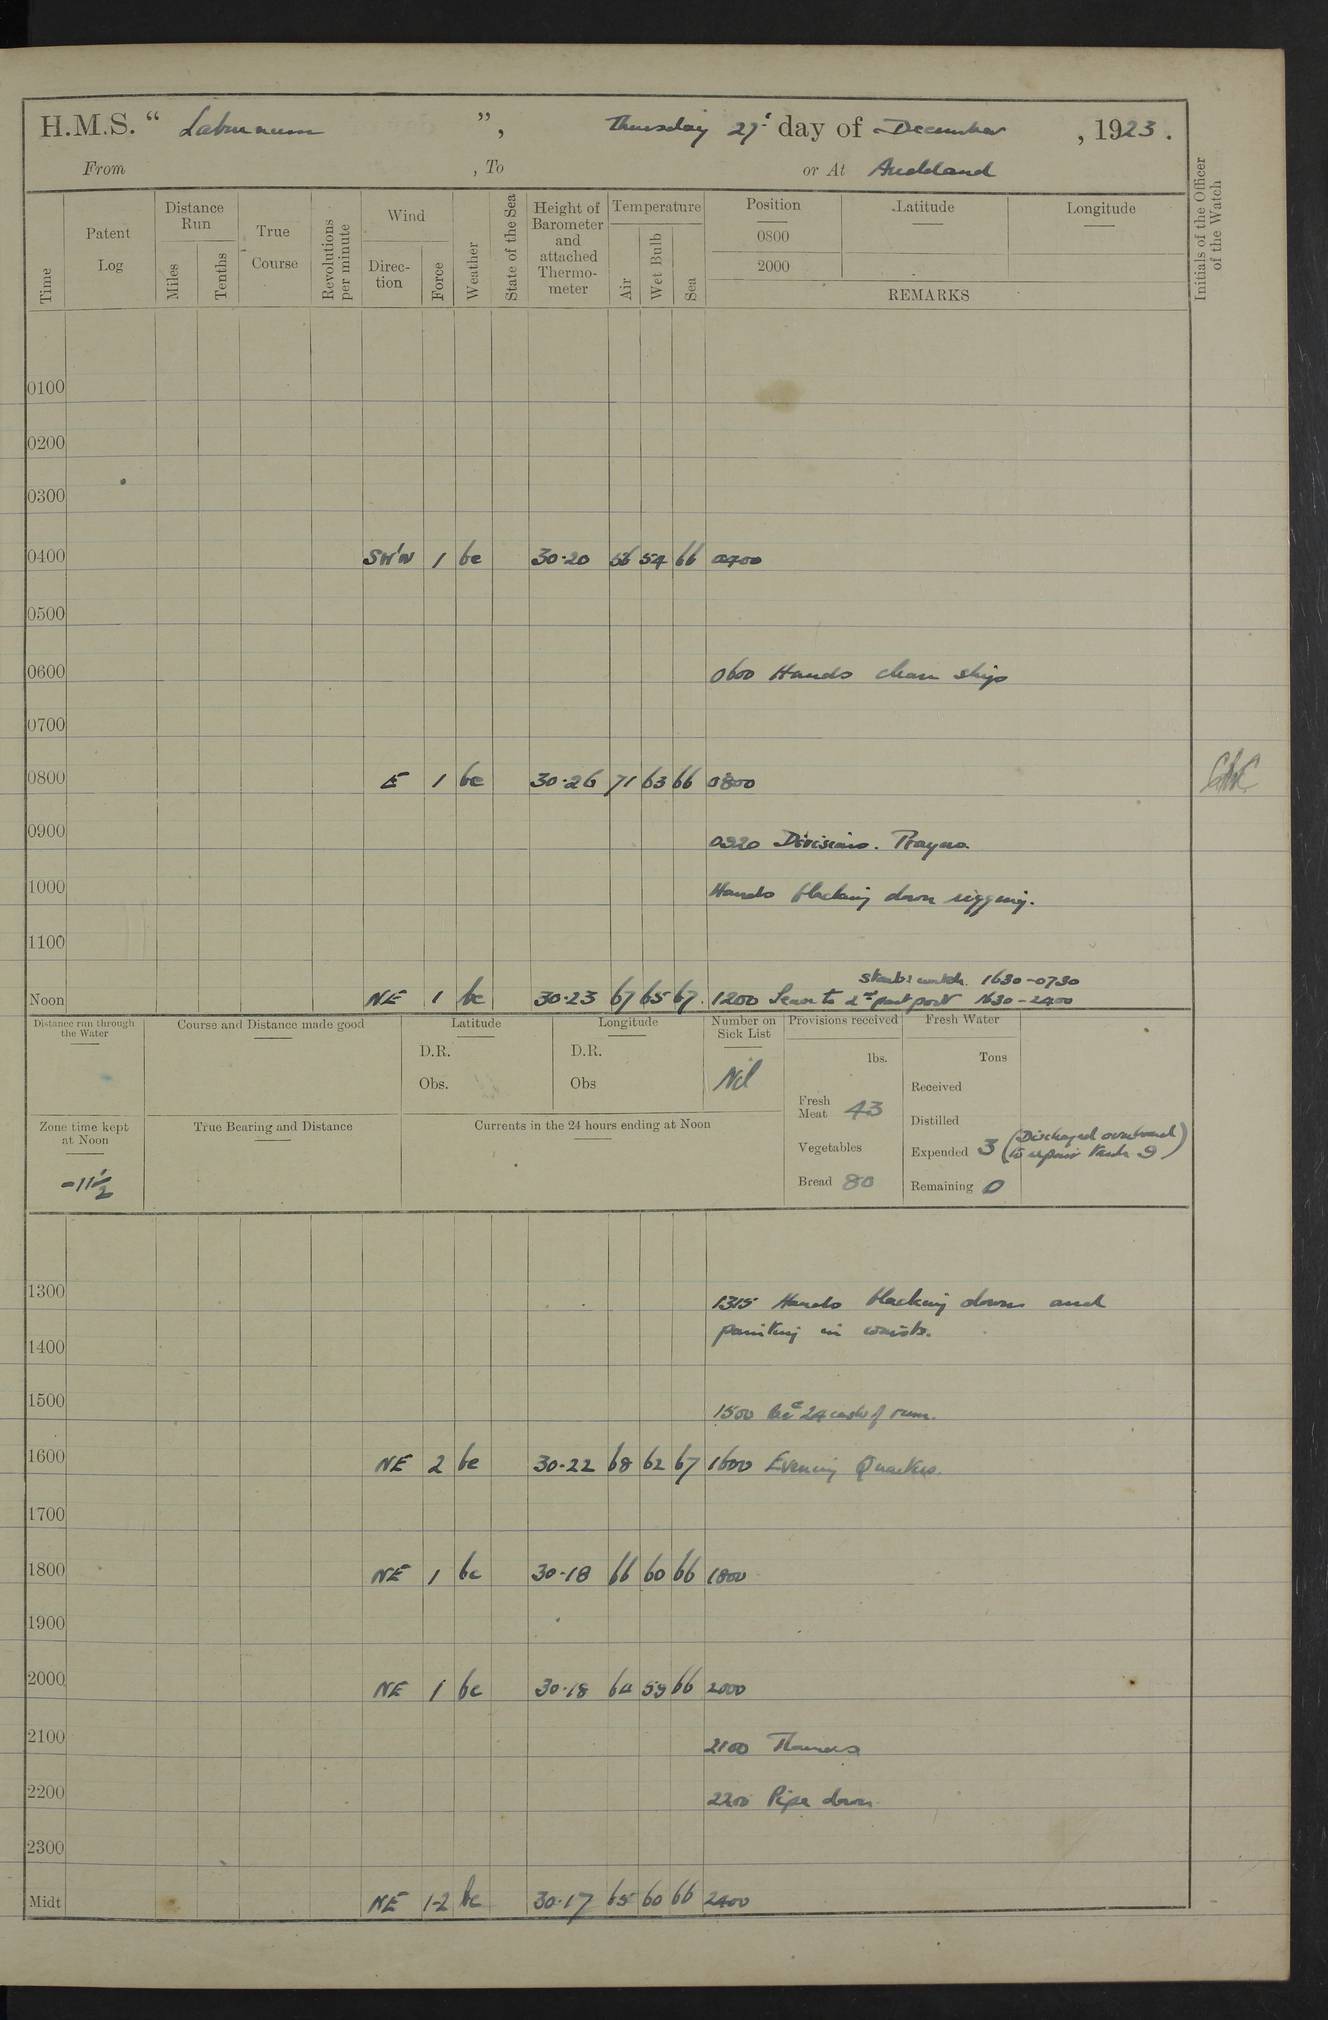 H.M.S. “ Laburnum ”, Thursday 27th day of December , 1923.
From , To or At Auckland
Time Patent Log Distance Run Miles Tenths True Course Revolutions per minute Wind Direc-tion Force Weather State of the Sea Height of Barometer and attached Thermo-meter Temperature Air Wet Bulb Sea Position Latitude Longitude
0800
2000
REMARKS
Initials of the Officer of the Watch
0100
0200
0300
0400 SW'W 1 bc 30·20 56 54 66 0400
0500
0600 0600 Hands clean ship
0700
0800 E 1 bc 30·26 71 63 66 0800
0900 0920 Divisions. Prayers
1000 Hands blacking down rigging.
1100
Starbd watch 1630-0730
Noon NE 1 bc 30·23 67 65 67. 1200 Leave to 2nd part port 1630-2400
Distance run through the Water Course and Distance made good Latitude Longitude Number on Sick List Provisions received Fresh Water
D.R. D.R. lbs. Tons
Obs. Obs Nil Received
Fresh Meat 43 Distilled
Zone time kept at Noon True Bearing and Distance Currents in the 24 hours ending at Noon
Vegetables Expended 3 (Discharged overboard to repair tank 9)
-11½ Bread 80 Remaining 0
1300 1315 Hands blacking down and
painting in waists.
1400
1500 1500 Recd 24 casks of rum.
1600 NE 2 bc 30·22 68 62 67 1600 Evening Quarters.
1700
1800 NE 1 bc 30·18 66 60 66 1800
1900
2000 NE 1 bc 30·18 64 59 66 2000
2100 2100 Rounds
2200 2200 Pipe down
2300
Midt NE 1-2 bc 30·17 65 60 66 2400